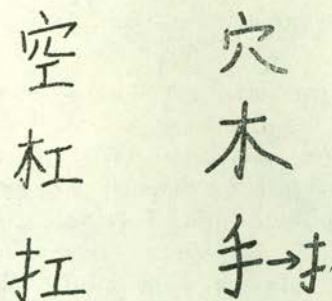 空 穴
杠 木
扛 手→扌